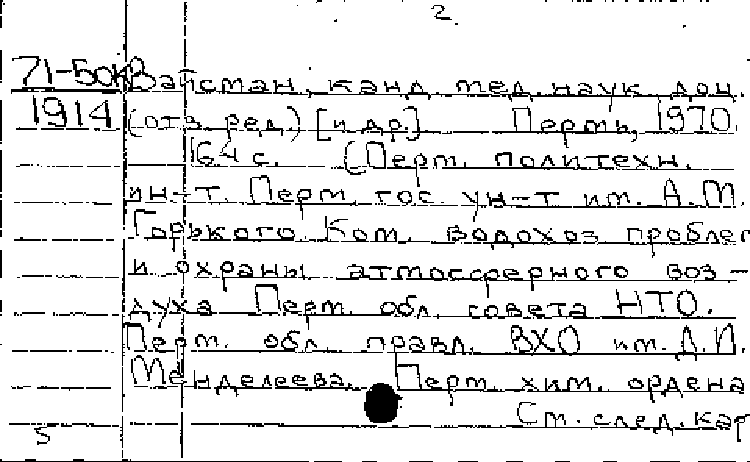 2.
71-5048 Вайсман, канд. мед. наук доц.
1914 (отв. ред.) [и др.] Пермь, 1970.
164 с. (Перм. политехн.
ин-т. Перм. гос. ун-т им. А.М.
Горького. Ком. водохоз проблем
и охраны атмосферного воз-
духа Перм. обл. совета НТО.
Перм. обл. правл. ВХО им. Д.И.
Менделеева. Перм. хим. ордена
См. след. кар
5